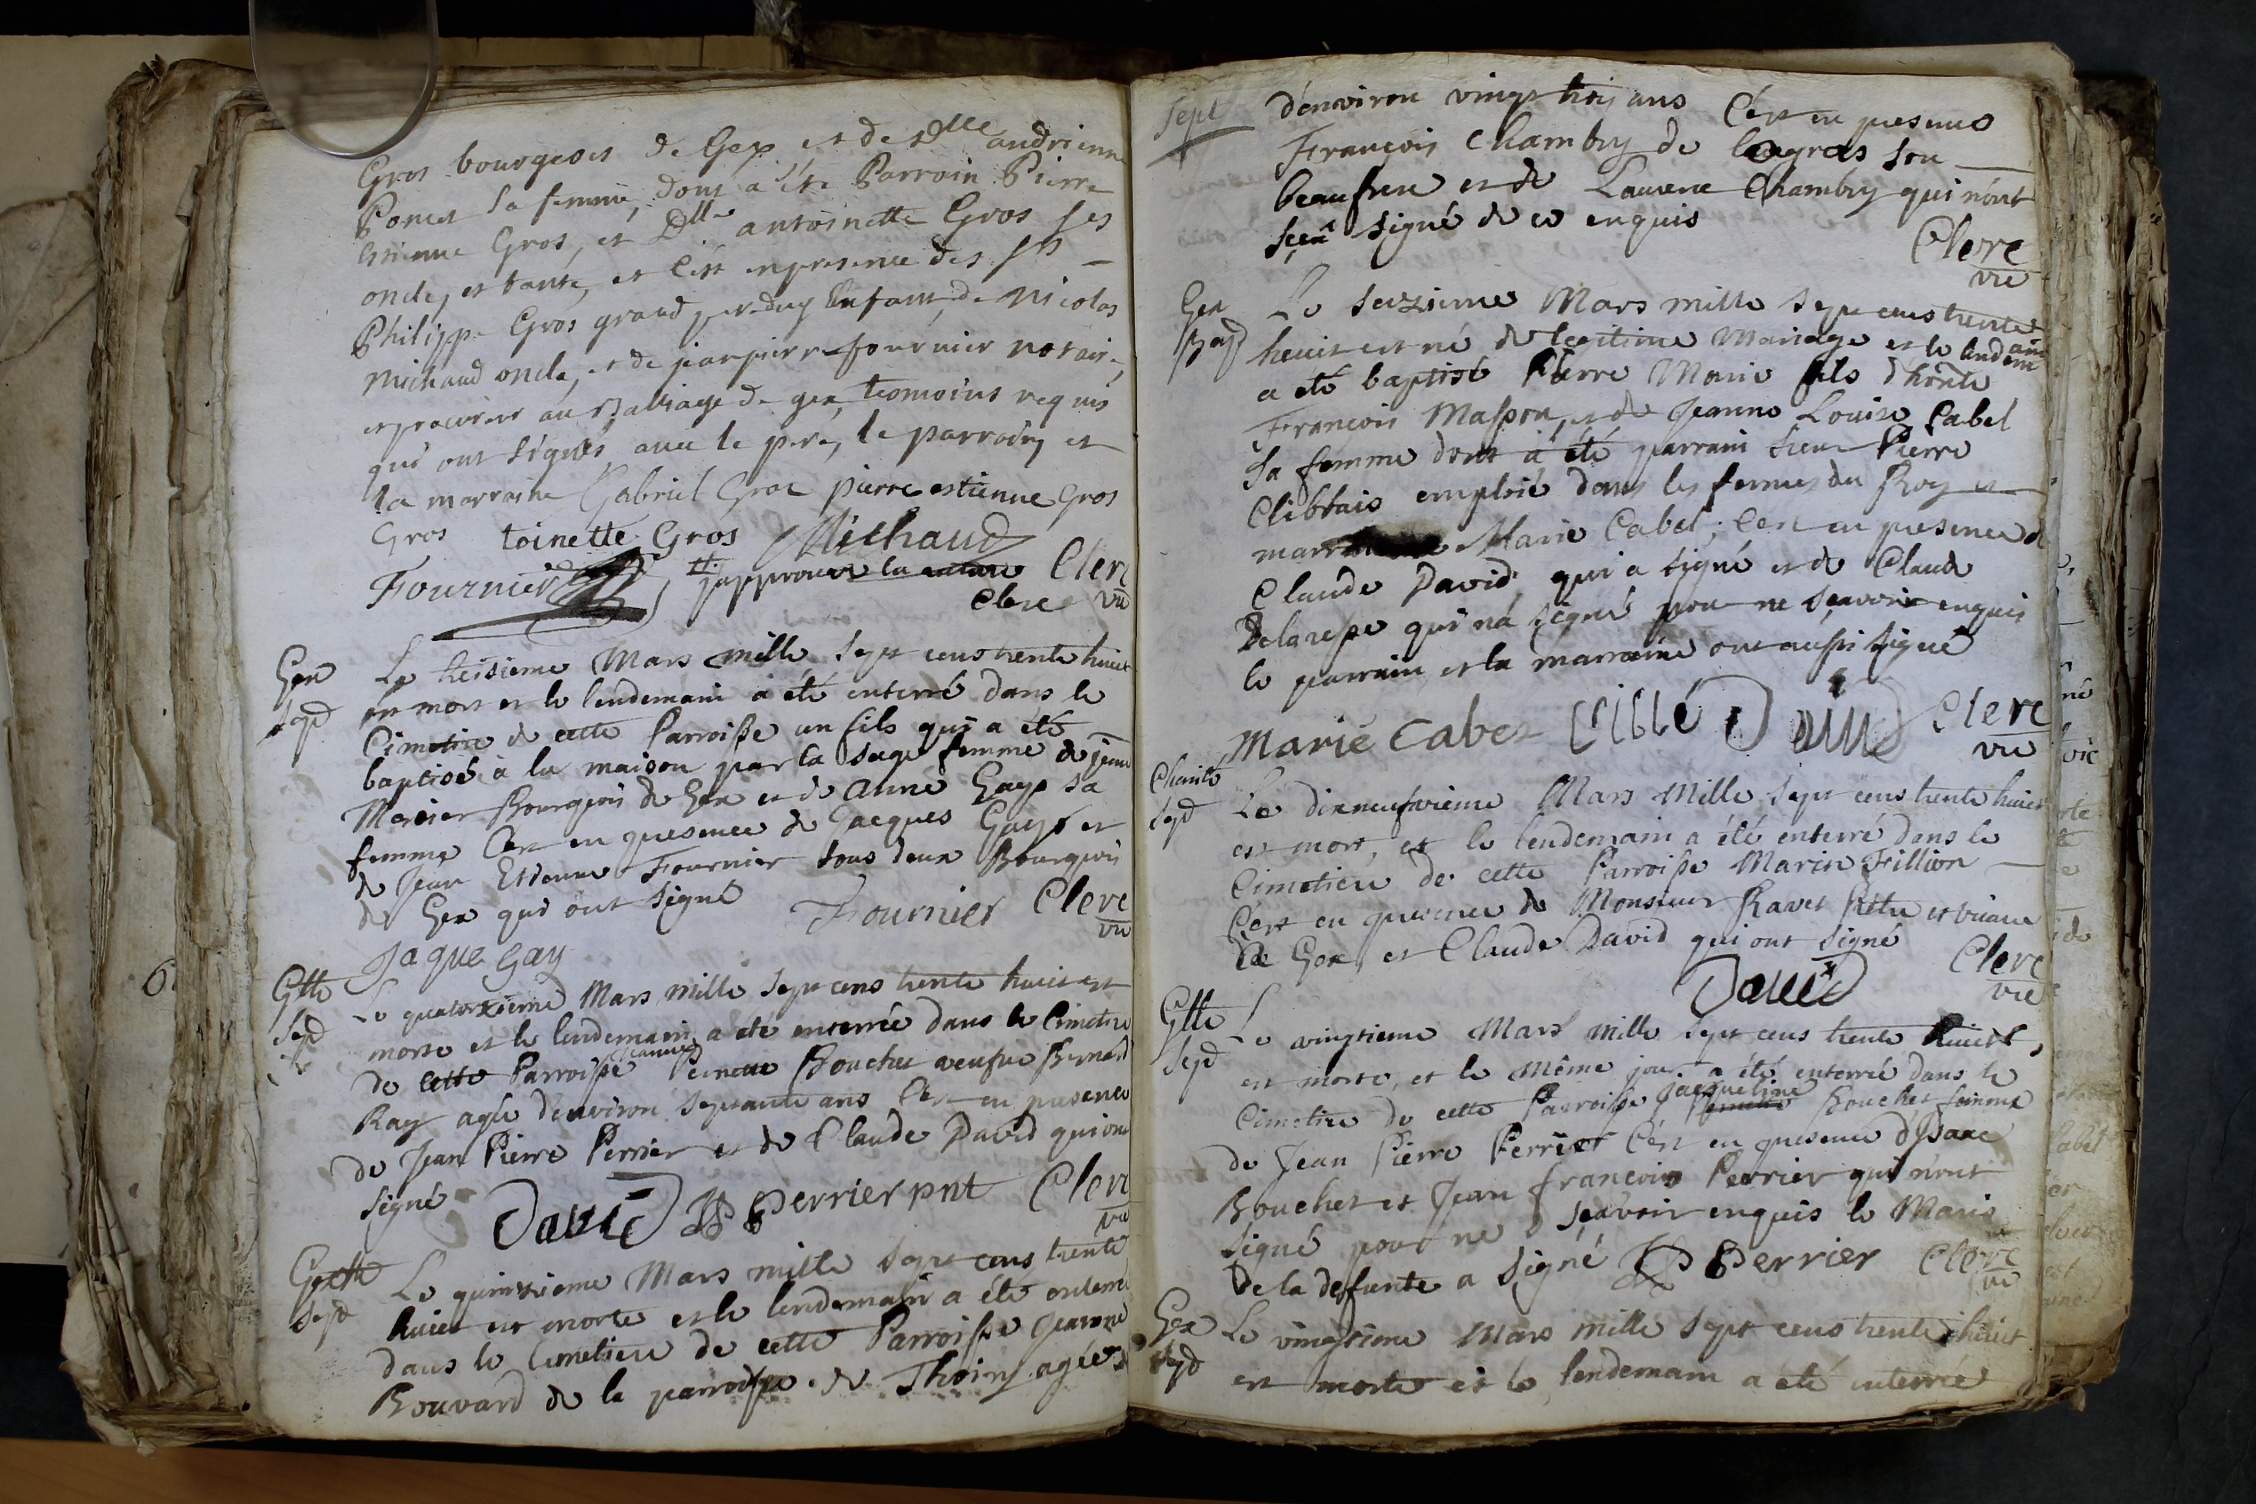 Gros bourgeois de Gex et de Dlle andrienne
Poncet sa femme, dont a été Parroin Pierre
estienne Gros, et Dlle antoinette Gros ses
oncle, et tante, et c'est en presence des srs
Philippe Gros grand pere dud enfant, de Nicolas
Michaud oncle, et de jeanpierre fournier notaire,
et procureur au Balliage de gex, temoins requis
qui ont signés avec le pere, le parroin et
la marraine Gabriel Gros pierre estienne Gros
Gros toinette Gros Michaud
Fournier j'approuve la Clerc
Clerc vic
Gex
sepd
Le treisieme Mars mille sept cens trente huict
est mort et le lendemain a été enterré dans le
Cimetire de cette Parroisse un fils qui a été
baptisé à la maison par la sage femme de jean
Mercier Bourgeois de Gex et de anne Gays sa
femme C'est en presence de Jacques Gays et
de Jean Etienne Fournier tous deux Bourgeois
de Gex qui ont signé Fournier Clerc
vic
Jaque Gay
Gtte
sepd
Le quatorzieme Mars mille sept cens trente huict est
morte et le lendemain a été enterrée dans le Cimetire
de cette Parroisse Jeanne Bouchet veufve Bernard
Ray agée d'environ septante ans C'est en presence
de Jean Pierre Perrier et de Claude David qui ont
signé David JP Perrier pnt Clerc
vic
Gex
sepd
Le quinzieme Mars mille sept cens trente
huict est morte et le lendemain a été enterré
dans le Cimetiere de cette Parroisse Jeanne
Bouvard de la parroisse de Thoiry agée
Sept
d'environ vingt trois ans C'est en presence
François Chambry de son
beaufrere et de Laurence Chambry qui n'ont
sceu signé de ce enquis
Clerc
vic
Gex
Bapd
Le seizieme Mars mille sept cens trente
heuict est né de legitime Mariage et le lendemain
a été baptisé Pierre Marie fils d'honte
François Masson, et de Jeanne Louise Cabet
sa femme dont a été parrain sieur Pierre
emploié dans les fermes du Roy et
Marie Cabet; C'est en presence de
Claude David qui a signé et de Claude
qui n'a signé pour ne sçavoir enquis
le parrain et la marraine ont aussi signé
Marie Cabet David Clerc
vic
sepd
Le dixneufvieme Mars Mille sept cens trente huict
est mort, et le lendemain a été enterré dans le
Cimetiere de cette Parroisse Marin Fillion
C'est en presence de Monsieur Ravet Pretre et vicaire
de Gex, et Claude David qui ont signé
David Clerc
vic
Gtte
sepd
Le vingtieme Mars mille sept cens trente huict,
est morte, et le même jour a été enterrée dans le
Cimetire de cette Parroisse Jacqueline Bouchet femme
de Jean Pierre Perrier C'est en presence d'Isaac
Bouchet et Jean françois Perrier qui n'ont
signé pour ne sçavoir enquis le Maris
de la deffunte a signé JP Perrier Clerc
vic
Gex
sepd
Le vingtieme Mars mille sept cens trente huict
est morte et le lendemain a été enterrée